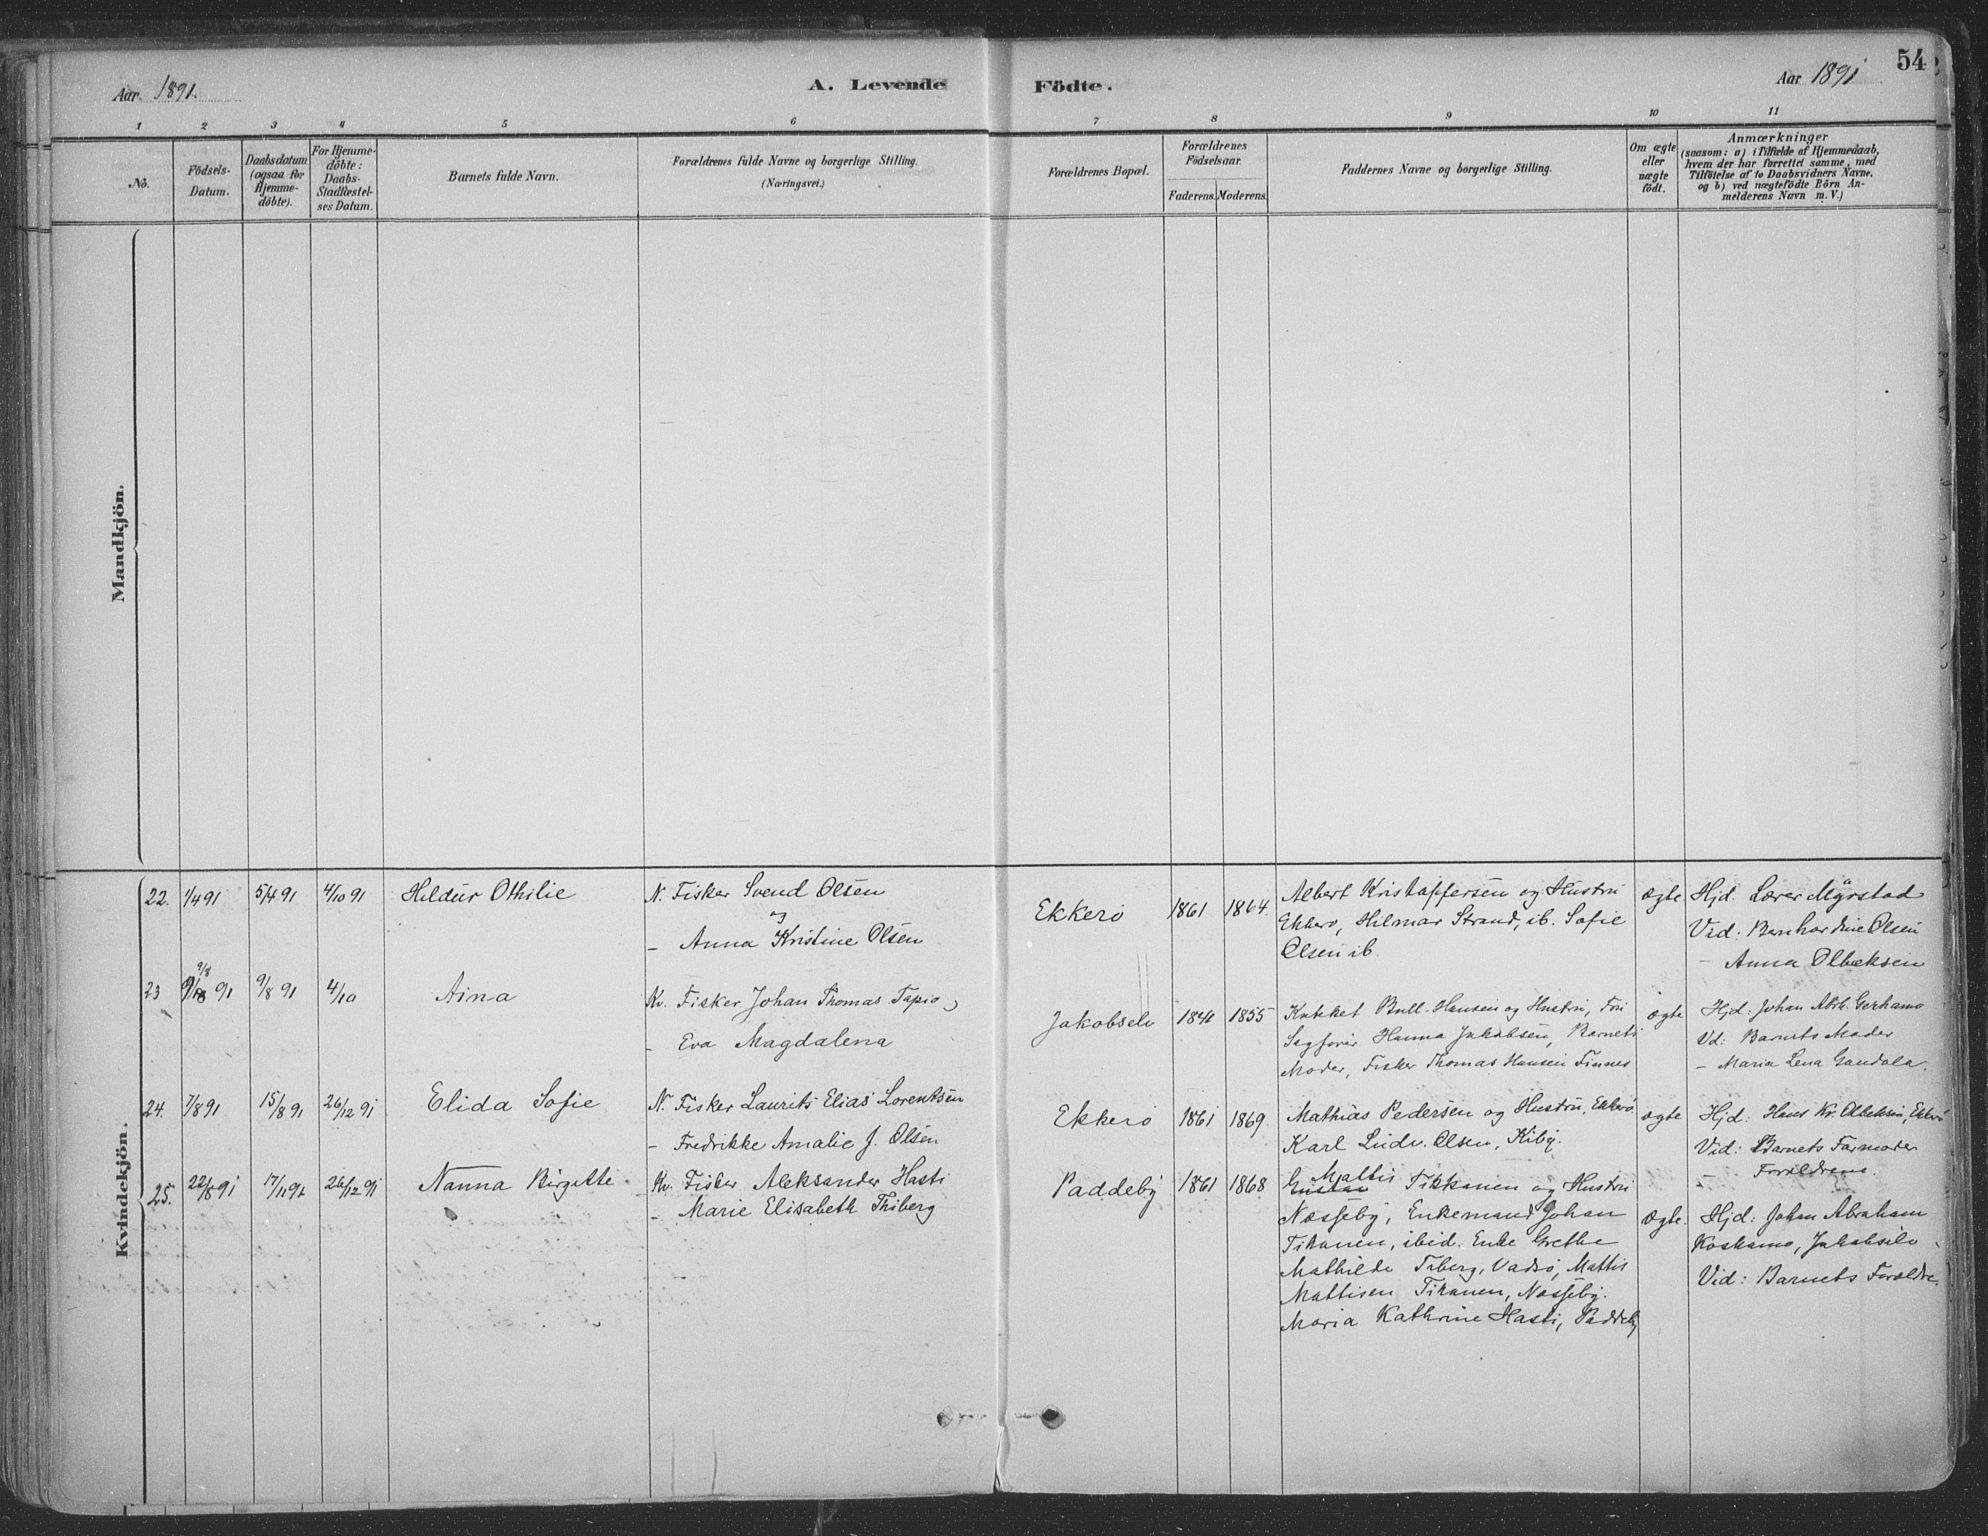 54
Aar 1891.
A. Levende Födte.
Aar 1891
1 2 3 4 5 6 7 8 9 10 11
No.
Födsels-
Datum.
Daabsdatum
(ogsaa for
Hjemme-
döbte).
For Hjemme-
döbte:
Daabs-
Stadfæstel-
ses Datum.
Barnets fulde Navn.
Forældrenes fulde Navne og borgerlige Stilling.
(Næringsvei.)
Forældrenes Bopæl.
Forældrenes
Födselsaar.
Faderens. Moderens.
Faddernes Navne og borgerlige Stilling.
Om ægte
eller
uægte
födt.
Anmærkninger
(saasom: a) i Tilfælde af Hjemmedaab,
hvem der har forrettet samme, med
Tilföielse af to Daabsvidners Navne,
og b) ved uægtefödte Börn An-
melderens Navn m. V.)
Mandkjön.
Kvindekjön.
22. 1/4 91 5/4 91 4/10 91 Hildur Othilie
N. Fisker Svend Olsen
og
- Anna Kristine Olsen
Ekkerö 1861 1864
Albert Kristoffersen og Hustru
Ekkerö, Hilmar Strand, ib. Sofie
Olsen ib.
ægte
Hjd. Lærer Myrstad
Vid: Bernhardine Olsen
- Anna Olbeksen
23 9/8 91 9/8 91 4/10 Aina
Kv. Fisker Johan Thomas Tapio
- Eva Magdalena
Jakobselv 1841 1855
Kateket Bull-Hansen og Hustru,
Hanna Jakobsen, Barnets
Moder, Fisker Thomas Hansen Finnes
ægte
Hjd: Johan Abrh.
Vd: Barnets Moder
- Maria Lena Gandola.
24. 7/8 91 15/8 91 26/12 91 Elida Sofie
N. Fisker Laurits Elias Lorentsen
- Fredrikke Amalie J. Olsen
Ekkerö 1861 1869
Mathias Pedersen og Hustru, Ekkerö
Karl Ludv. Olsen, Kiby.
ægte
Hjd: Hans Kr. Olbeksen, Ekkerö
Vid: Barnets Farmoder
- Forældrene.
25. 22/8 91 17/11 91 26/12 91 Nanna Birgitte
Kv. Fisker Aleksander Hasti
- Marie Elisabeth Thiberg
Paddeby 1861 1868
Mattis
Gustav Tikkanen og Hustru
Næsseby, Enkemand Johan
Tikanen, ibid. Enke Grethe
Mathilde Tiberg, Vadsö, Mattis
Mattisen Tikanen, Næsseby.
Maria Kathrine Hasti, Paddeby
Ægte.
Hjd: Johan Abraham
Koskamo, Jakobselv
Vid: Barnets Forældre.